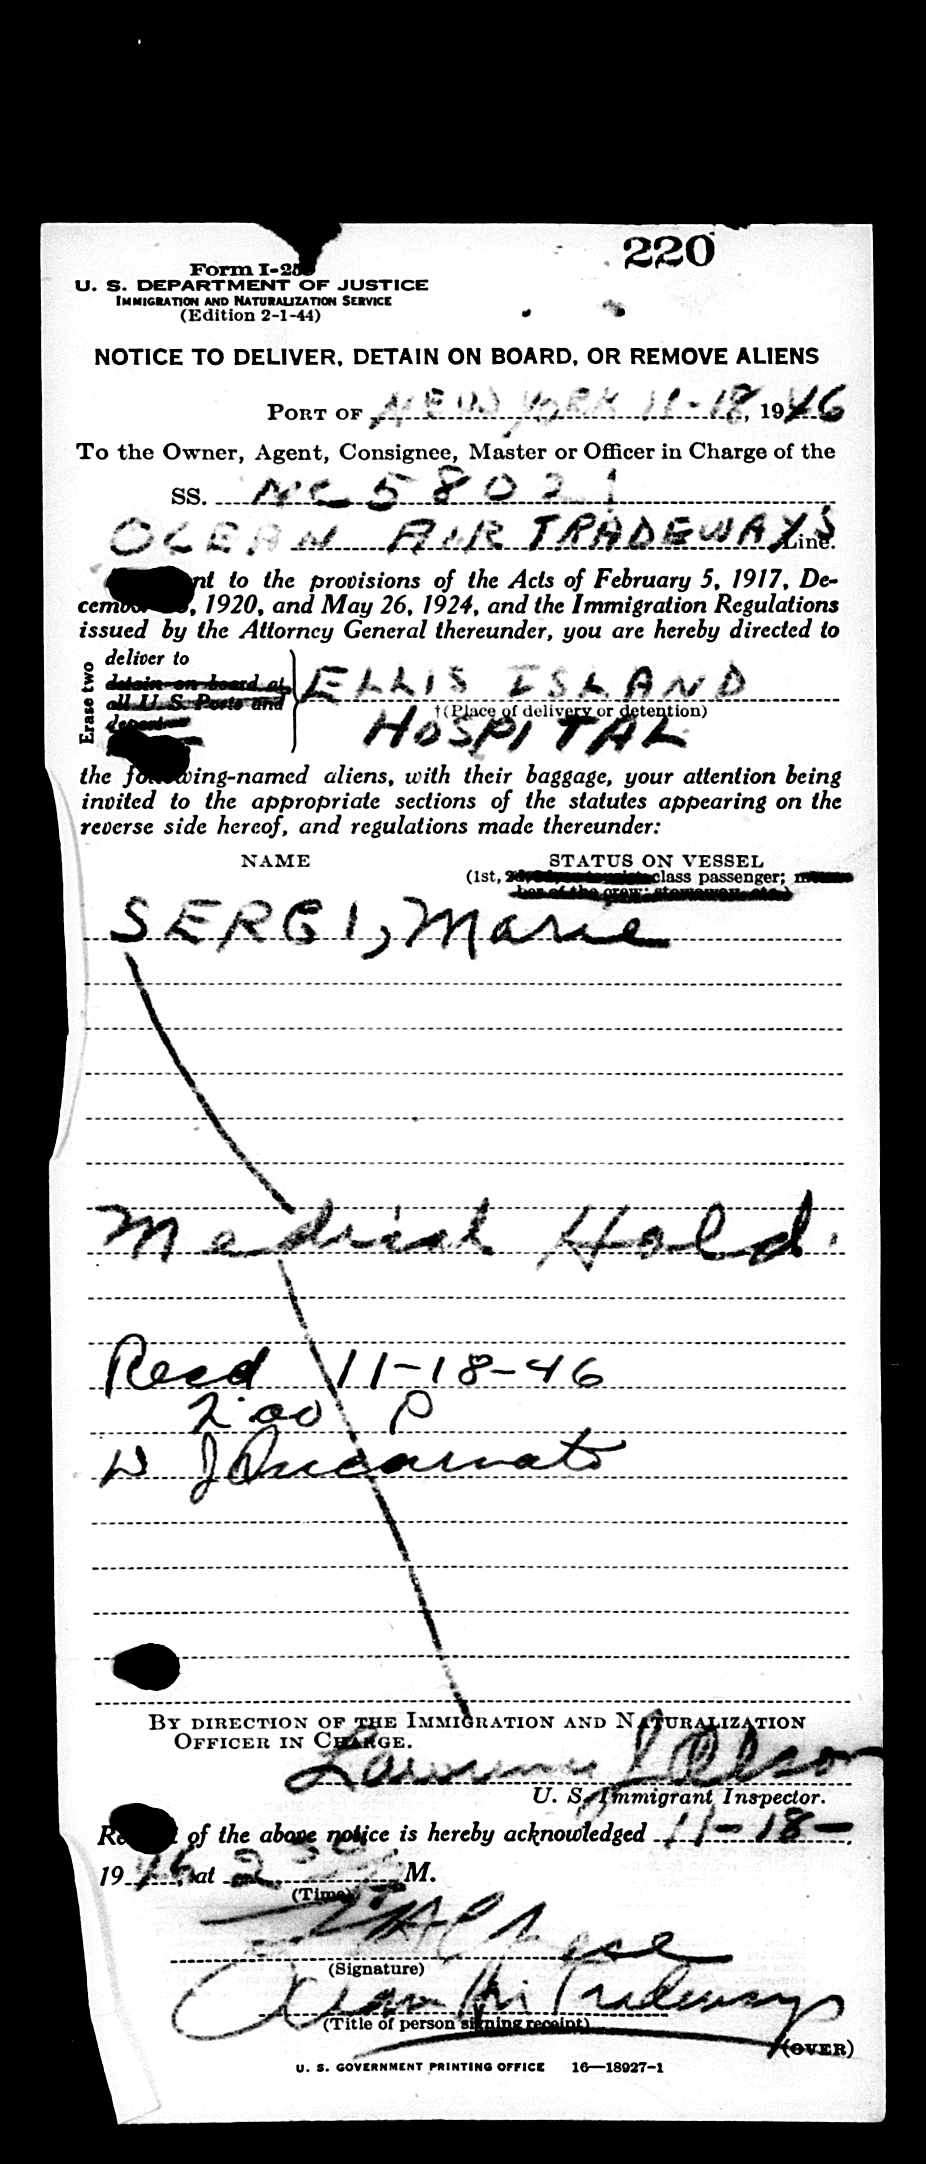 220
Form I-25
U. S. DEPARTMENT OF JUSTICE
IMMIGRATION AND NATURALIZATION SERVICE
(Edition 2-1-44)
NOTICE TO DELIVER, DETAIN ON BOARD, OR REMOVE ALIENS
PORT OF NEW YORK 11-18, 1946
To the Owner, Agent, Consignee, Master or Officer in Charge of the
SS. NC 58021
OCEAN AIR TRADEWAYS Line.
nt to the provisions of the Acts of February 5, 1917, De-
cember, 1920, and May 26, 1924, and the Immigration Regulations
issued by the Attorney General thereunder, you are hereby directed to
Erase two
deliver to
detain on board at
all U. S. Ports and
deport
ELLIS ISLAND
†(Place of delivery or detention)
HOSPITAL
the following-named aliens, with their baggage, your attention being
invited to the appropriate sections of the statutes appearing on the
reverse side hereof, and regulations made thereunder:
NAME STATUS ON VESSEL
(1st, class passenger;
ber of the crew; stowaway, etc.)
SERGI, Marie
Medical Hold.
Recd 11-18-46
2:00 P
BY DIRECTION OF THE IMMIGRATION AND NATURALIZATION
OFFICER IN CHARGE.
Lawrence J Olson
U. S. Immigrant Inspector.
of the above notice is hereby acknowledged 11-18-,
1946, at 2 M.
(Time)
(Signature)
Ocean Air Tradeways
(Title of person signing receipt)
(OVER)
U. S. GOVERNMENT PRINTING OFFICE 16—18927-1